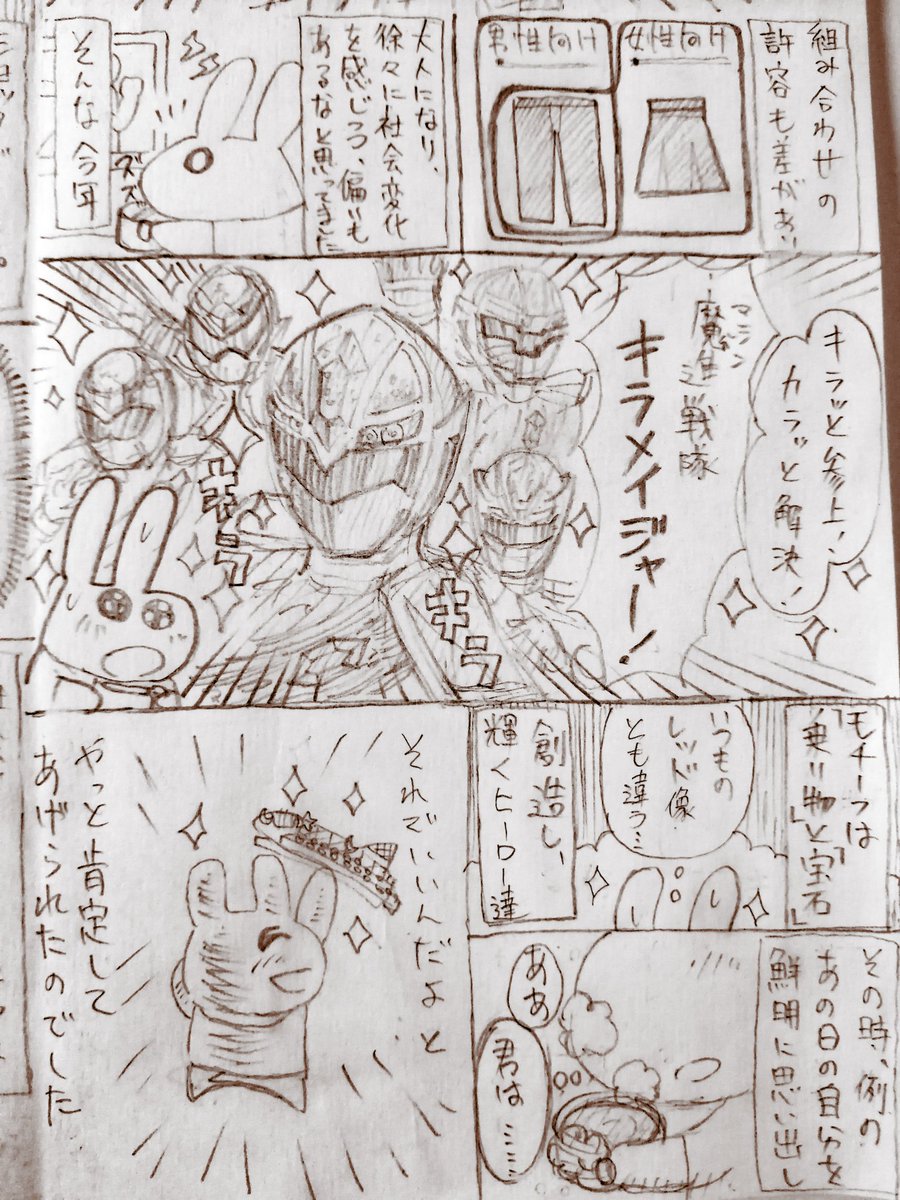 組み合わせの
許容も差があり
女性向け
男性向け
大人になり、
徐々に社会変化
を感じつつ、偏りも
あるなと思ってきた
そんな今年
ズズ
キラッと参上、
カラッと解決！
魔進戦隊
マシン
キラメイジャー！
キラ
キラ
モチーフは
「乗り物」と「宝石」
いつもの
レッド像
とも違う…
創造し、
輝くヒーロー達
その時、例の
あの日の自分を
鮮明に思い出し
ああ
君は……
それでいいんだよと
やっと肯定して
あげられたのでした